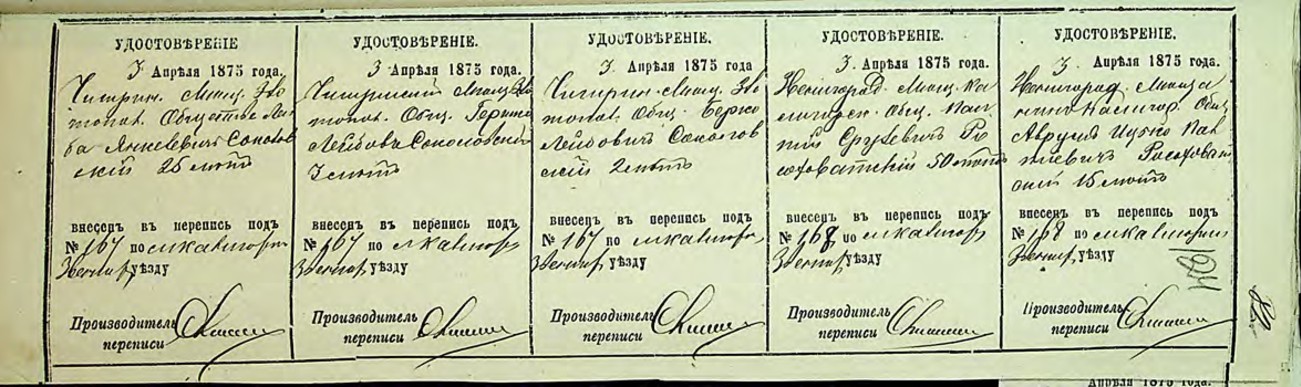 УДОСТОВѢРЕНІЕ
3 Апрѣля 1875 года.
Чигирин. Мѣщ.
Общества Лей
ба Янкелевичъ Соколов
скій 25 лѣтъ
внесенъ въ перепись подъ
№ 167 по м. Калигор
Звениг. уѣзду
Производитель
переписи
УДОСТОВѢРЕНІЕ.
3 Апрѣля 1875 года.
Общ. Гершко
Лейбовъ Соколовскій
3 лѣтъ
внесенъ въ перепись подъ
№ 167 по м. Калигор
Звениг. уѣзду
Производитель
переписи
УДОСТОВѢРЕНІЕ.
3 Апрѣля 1875 года
Чигирин. Мѣщ.
Общ. Берко
Лейбовичъ Соколов
скій 2 лѣтъ
внесенъ въ перепись подъ
№ 167 по м. Калигор
Звениг. уѣзду
Производитель
переписи
УДОСТОВѢРЕНІЕ.
3 Апрѣля 1875 года.
Звенигород. Мѣщ. Ка
лигор. Общ.
Срулевичъ Ро
соховатскій 50 лѣтъ
внесенъ въ перепись подъ
№ 168 по м. Калигор
Звениг. уѣзду
Производитель
переписи
УДОСТОВѢРЕНІЕ.
3 Апрѣля 1875 года.
Звенигород. Мѣща
нинъ Калигор. Общ
Аврумъ Ицко
Росоховат
скій 15 лѣтъ
внесенъ въ перепись подъ
№ 168 по м. Калигор
Звениг. уѣзду
Производитель
переписи
Апрѣля 1875 года.